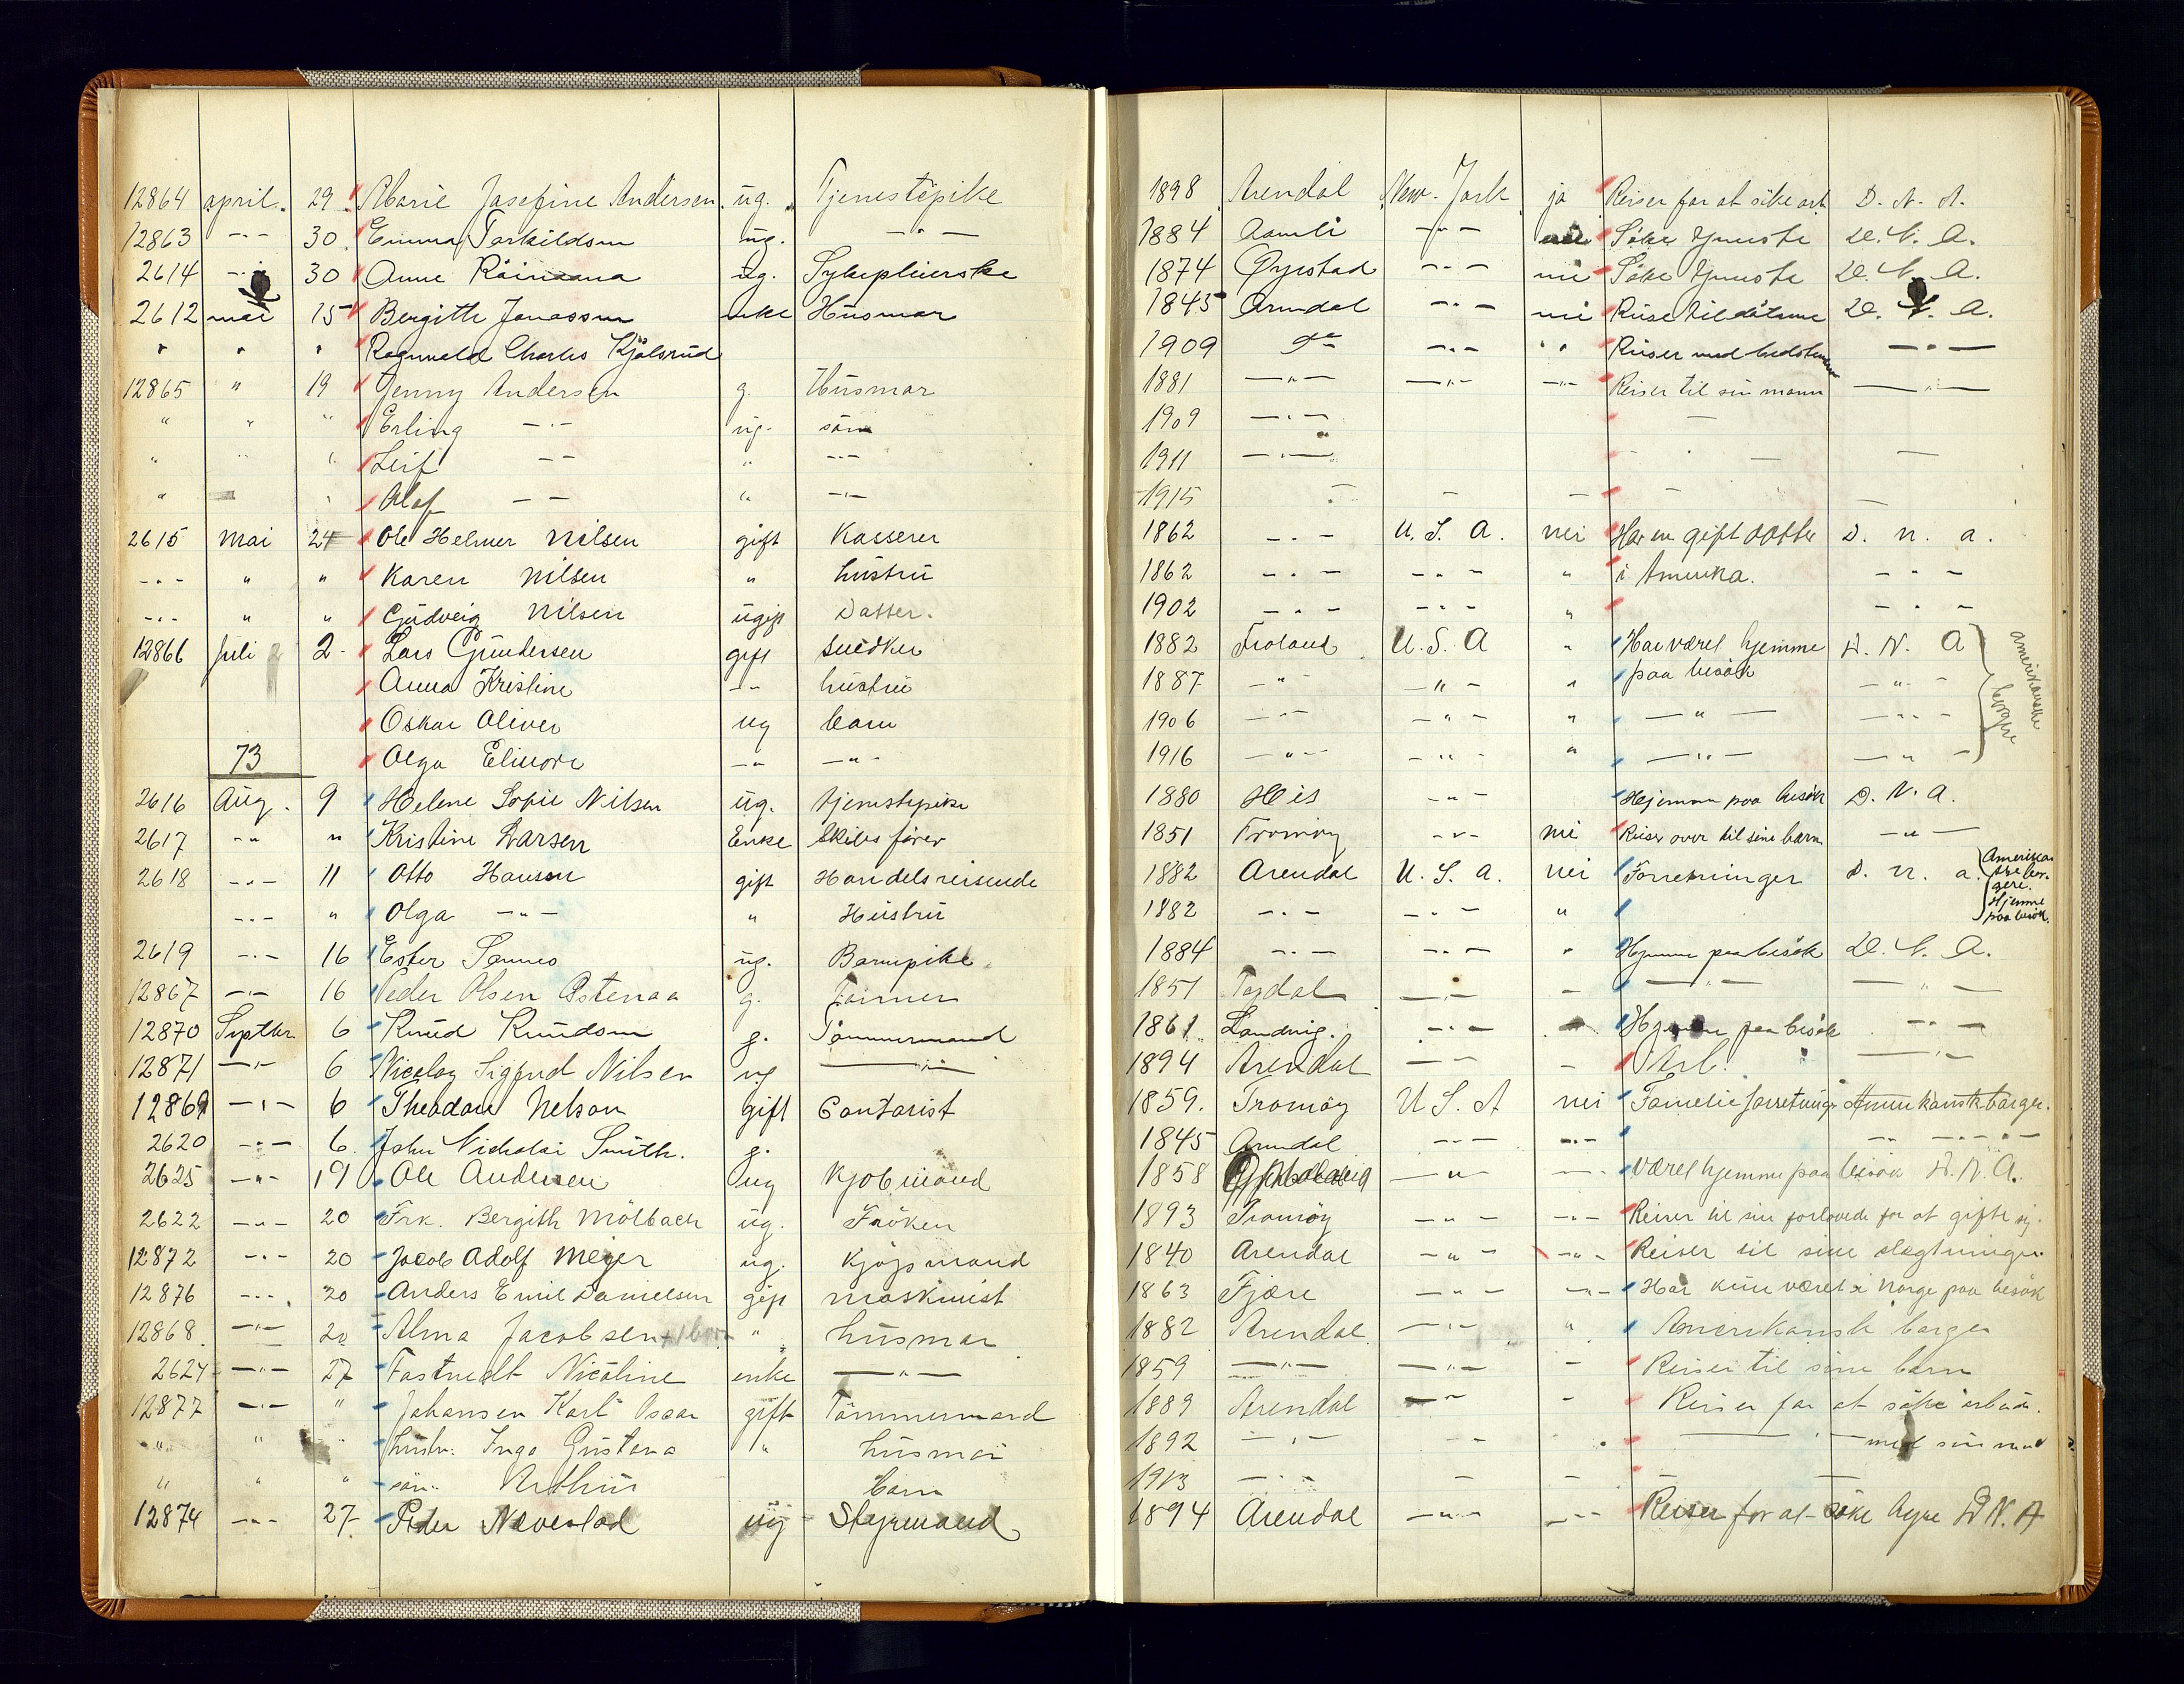 12864 april. 29 Marie Josefine Andersen ug. Tjenestepike 1898 Arendal New-York ja Reiser for at söke arb. D. N. A.
12863 -"- 30 Emma Torkildsen ug. -"- 1884 Aamli -"- nei Söke tjeneste D. N. A.
2614 -"- 30 Anne ug. 1874 Öyestad -"- nei Söke tjeneste D. N. A.
2612 mai 15 Bergitte Jonassen enke Husmor 1845 Arendal -"- nei Reise til D. N. A.
" " " Ragnvald Charles Kjölsrud 1909 do -"- " " Reiser med -"-
12865 " 19 Jenny Andersen g. Husmor 1881 -"- -"- -"- Reiser til sin mann -"-
" " " Erling -"- ug. sön 1909 -"- -
" " " Leif -- " -"- 1911 -"- - " - -
" " Olaf -- " -"- 1915 - - - - -
2615 Mai 24 Ole Helmer Nilsen gift Kasserer 1862 -"- U. S. A. nei Har en gift datter D. n. a.
-"- " " Karen Nilsen " hustru 1862 -"- -"- " i Amerika. -"-
-"- " " Gudveig Nilsen ugift Datter. 1902 -"- -"- " -"-
12866 Juli 2. Lars Gundersen gift snedker 1882 Froland U.S.A " Har været hjemme D. N. A amerikanske
Anna Kristine -"- hustru 1887 -"- -"- " paa besök -"- borgere
Oskar Oliver ug barn 1906 -"- -"- " -"- -"-
73 Olga Elinore -"- -"- 1916 -"- -"- " -"- -"-
2616 Aug. 9 Helene Sofie Nilsen ug. tjenestepike 1880 His -"- Hjemme paa besök D. N. A.
2617 -"- " Kristine Larsen Enke Skibsförer 1851 Tromöy -"- nei Reiser over til sine barn -"-
2618 -"- 11 Otto Hansen gift Handelsreisende 1882 Arendal U. S. A. nei Forretninger D. n. a. Amerikan
ske bor-
gere.
Hjemme
paa besök.
-"- " Olga -"- " Hustru 1882 -"- -"- "
2619 -"- 16 Ester ug. Barnepike 1884 -"- -"- " Hjemme paa besök D. N. A.
12867 -"- 16 Peder Olsen Östenaa g. Farmer 1851 -"- - -"- -"-
12870 Septbr 6 Knud Knudsen g. Tömmermand 1861 Landvig. -"- Hjemme paa besök -"-
12871 -"- 6 Nicolay Sigurd Nilsen ug -"- 1894 Arendal -"- - Arb. -"-
12869 -"- 6 Theodor Nelson gift Contorist 1859. Tromöy U S. A nei Familie forretninger Amerikansk borger.
2620 -"- 6. John Nicholai Smith. g. 1845 Arendal -"- -"- -- -"-
2625 -"- 19 Ole Andersen ug Kjobmand 1858 -"- -"- Været hjemme paa besök D. N. A.
2622 -"- 20 Frk. Bergith Mölbach ug. Fröken 1893 Tromöy -"- -"- Reiser til sin forlovede for at gifte sig.
12872 -"- 20 Jacob Adolf Meyer ug. Kjöpmand 1840 Arendal -"- -"- Reiser til sine slegtninger
12876 -"- 20 Anders Emil Danielsen gift maskinist 1863 Fjære -"- -"- Har kun været i Norge paa besök
12868 -"- 20 Alma Jacobsen + 1 barn " husmor 1882 Arendal -"- " Amerikansk borger
2624 -"- 27 Fastnedt Nicoline enke -"- 1859 -"- -"- - Reiser til sine barn
12877 -"- " Johansen Karl Oscar gift Tömmermand 1889 Arendal -"- - Reiser for at söke arbeide.
" " " hustr. Inga Gustava " husmor 1892 -"- -- " -"- med sin mand
" " " sön. Arthur barn 1913 -"- - - - -
12874 -"- 27 Peder Nævestad ug Styrmand 1894 Arendal -"- -"- Reiser for at söke hyre D N. A